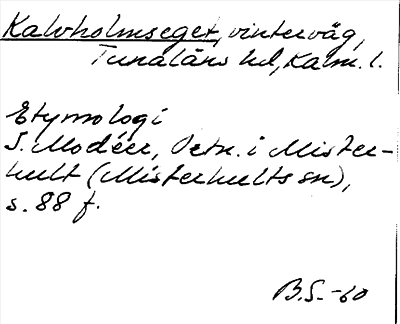 Kalvholmseget, vinterväg,
Tunaläns hd, Kalm. l.
Etymologi
I. Modéer, Ortn. i Mister-
hult (Misterhults sn),
s. 88 f.
B.S. -60